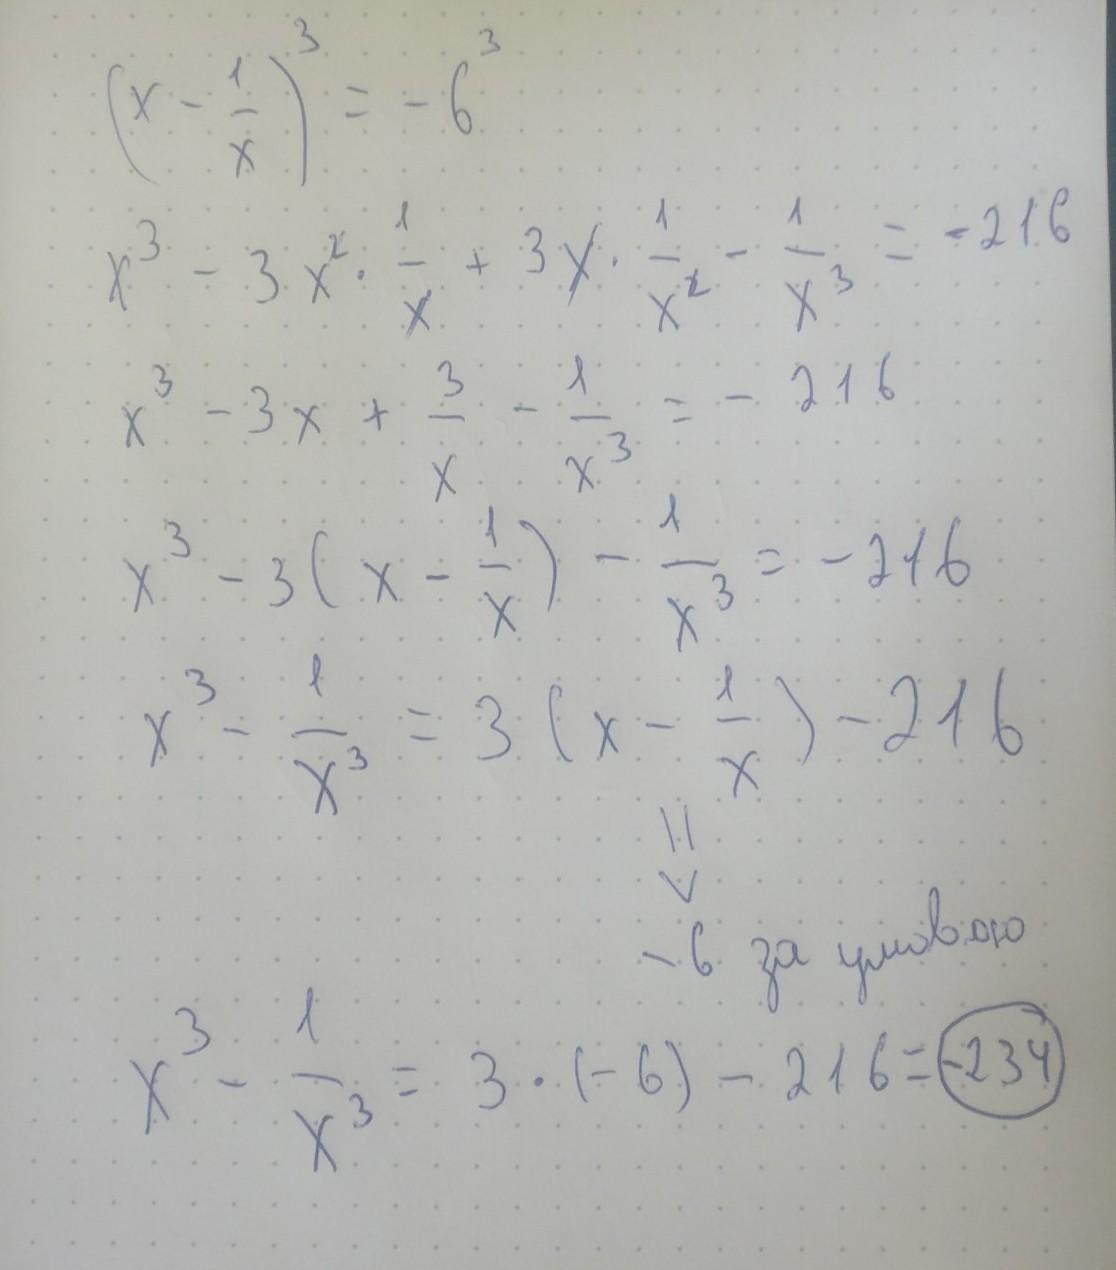 (x - 1/x)³ = -6³
x³ - 3x² · 1/x + 3x · 1/x² - 1/x³ = -216
x³ - 3x + 3/x - 1/x³ = - 216
x³ - 3(x - 1/x) - 1/x³ = -216
x³ - 1/x³ = 3(x - 1/x) - 216
-6 за умовою
x³ - 1/x³ = 3 · (-6) - 216 = -234